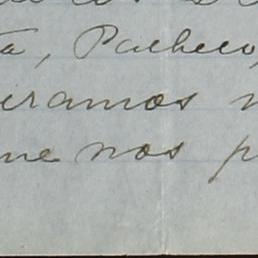 ta, Pacheco,
iramos n
me nos p